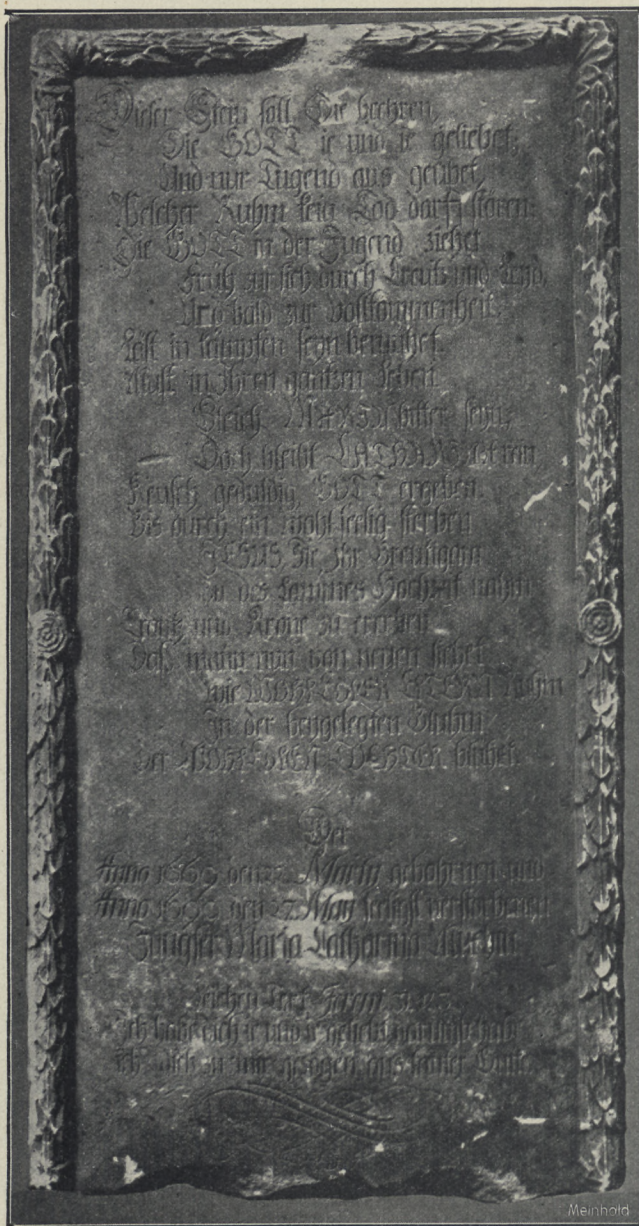 Dieser Stein soll Sie beehren,
Die GOTT ie und ie geliebet,
Und nur Tugend aus geübet,
Welcher Ruhm kein Tod darf stören.
Die GOTT in der Jugend ziehet
Früh zu sich durch Creutz und
Und bald zur Vollkommenheit,
Läst in kämpfen seyn bemühet.
Must in Ihren gantzen Leben
Gleich MARIA bitter seyn,
Doch bleibt CATHARINA rein,
Keusch, geduldig, GOTT ergeben.
Bis durch ein wohl seelig sterben
JESUS, Sie, Ihr Breutigam
zu des Lammes Hochzeit nahm
und Krone zu ererben
Daß man nun von neuen siehet
wie
In der beygelegten
Der blühet.
Der
Anno den Martii gebohrenen und
Anno den 27 May seeligst verstorbenen
Jungfer Maria Catharina
Leichen Text Jerem
Ich habe dich ie und ie geliebt
ich dich zu mir gezogen aus lauter Güte
Meinhold